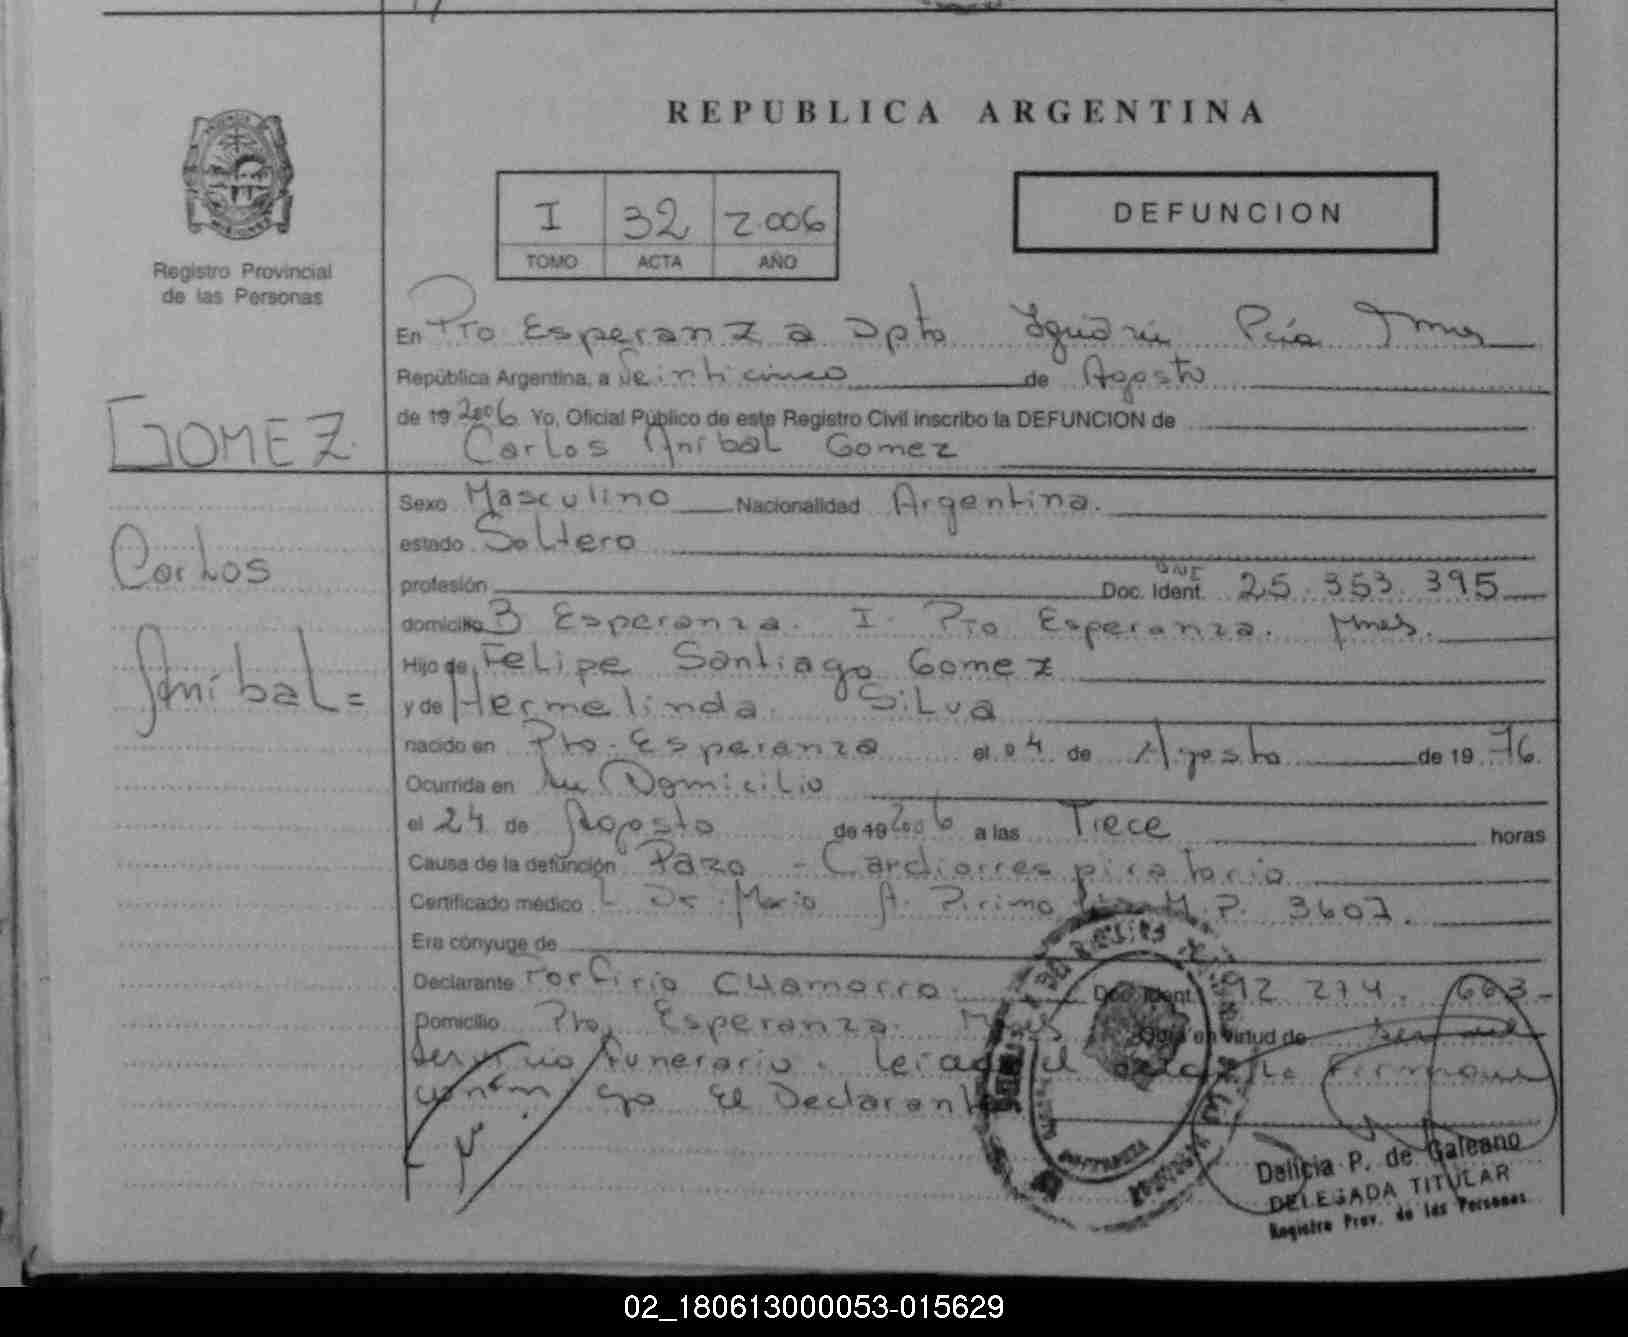 REPUBLICA ARGENTINA
I 32 2.006
TOMO ACTA AÑO
DEFUNCION
Registro Provincial
de las Personas
En Pto Esperanza Dpto Iguazú Pcia Mnes
República Argentina, a Veinticinco de Agosto
de 19 2006 Yo, Oficial Público de este Registro Civil inscribo la DEFUNCION de
Carlos Anibal Gomez
GOMEZ
Carlos
Anibal =
Sexo Masculino Nacionalidad Argentina.
estado Soltero
profesión Doc. Ident. DNI 25.353.395
domicilio B Esperanza. I. Pto Esperanza. Mnes.
Hijo de Felipe Santiago Gomez
y de Hermelinda Silva
nacido en Pto. Esperanza el 04 de Agosto de 19 76.
Ocurrida en Su Domicilio
el 24 de Agosto de 19 2006 a las Trece horas
Causa de la defunción Paro - Cardiorrespiratorio
Certificado médico Dr. Mario A. M.P. 3607.
Era cónyuge de
Declarante Porfirio Chamorro. Doc. Ident. 92 274. 663-
Domicilio Pto. Esperanza. Mnes Obra en virtud de
Servicio Funerario. Leida el acta La Firman
conmigo El Declarante
Delicia P. de Galeano
DELEGADA TITULAR
Registro Prov. de las Personas
02_180613000053-015629